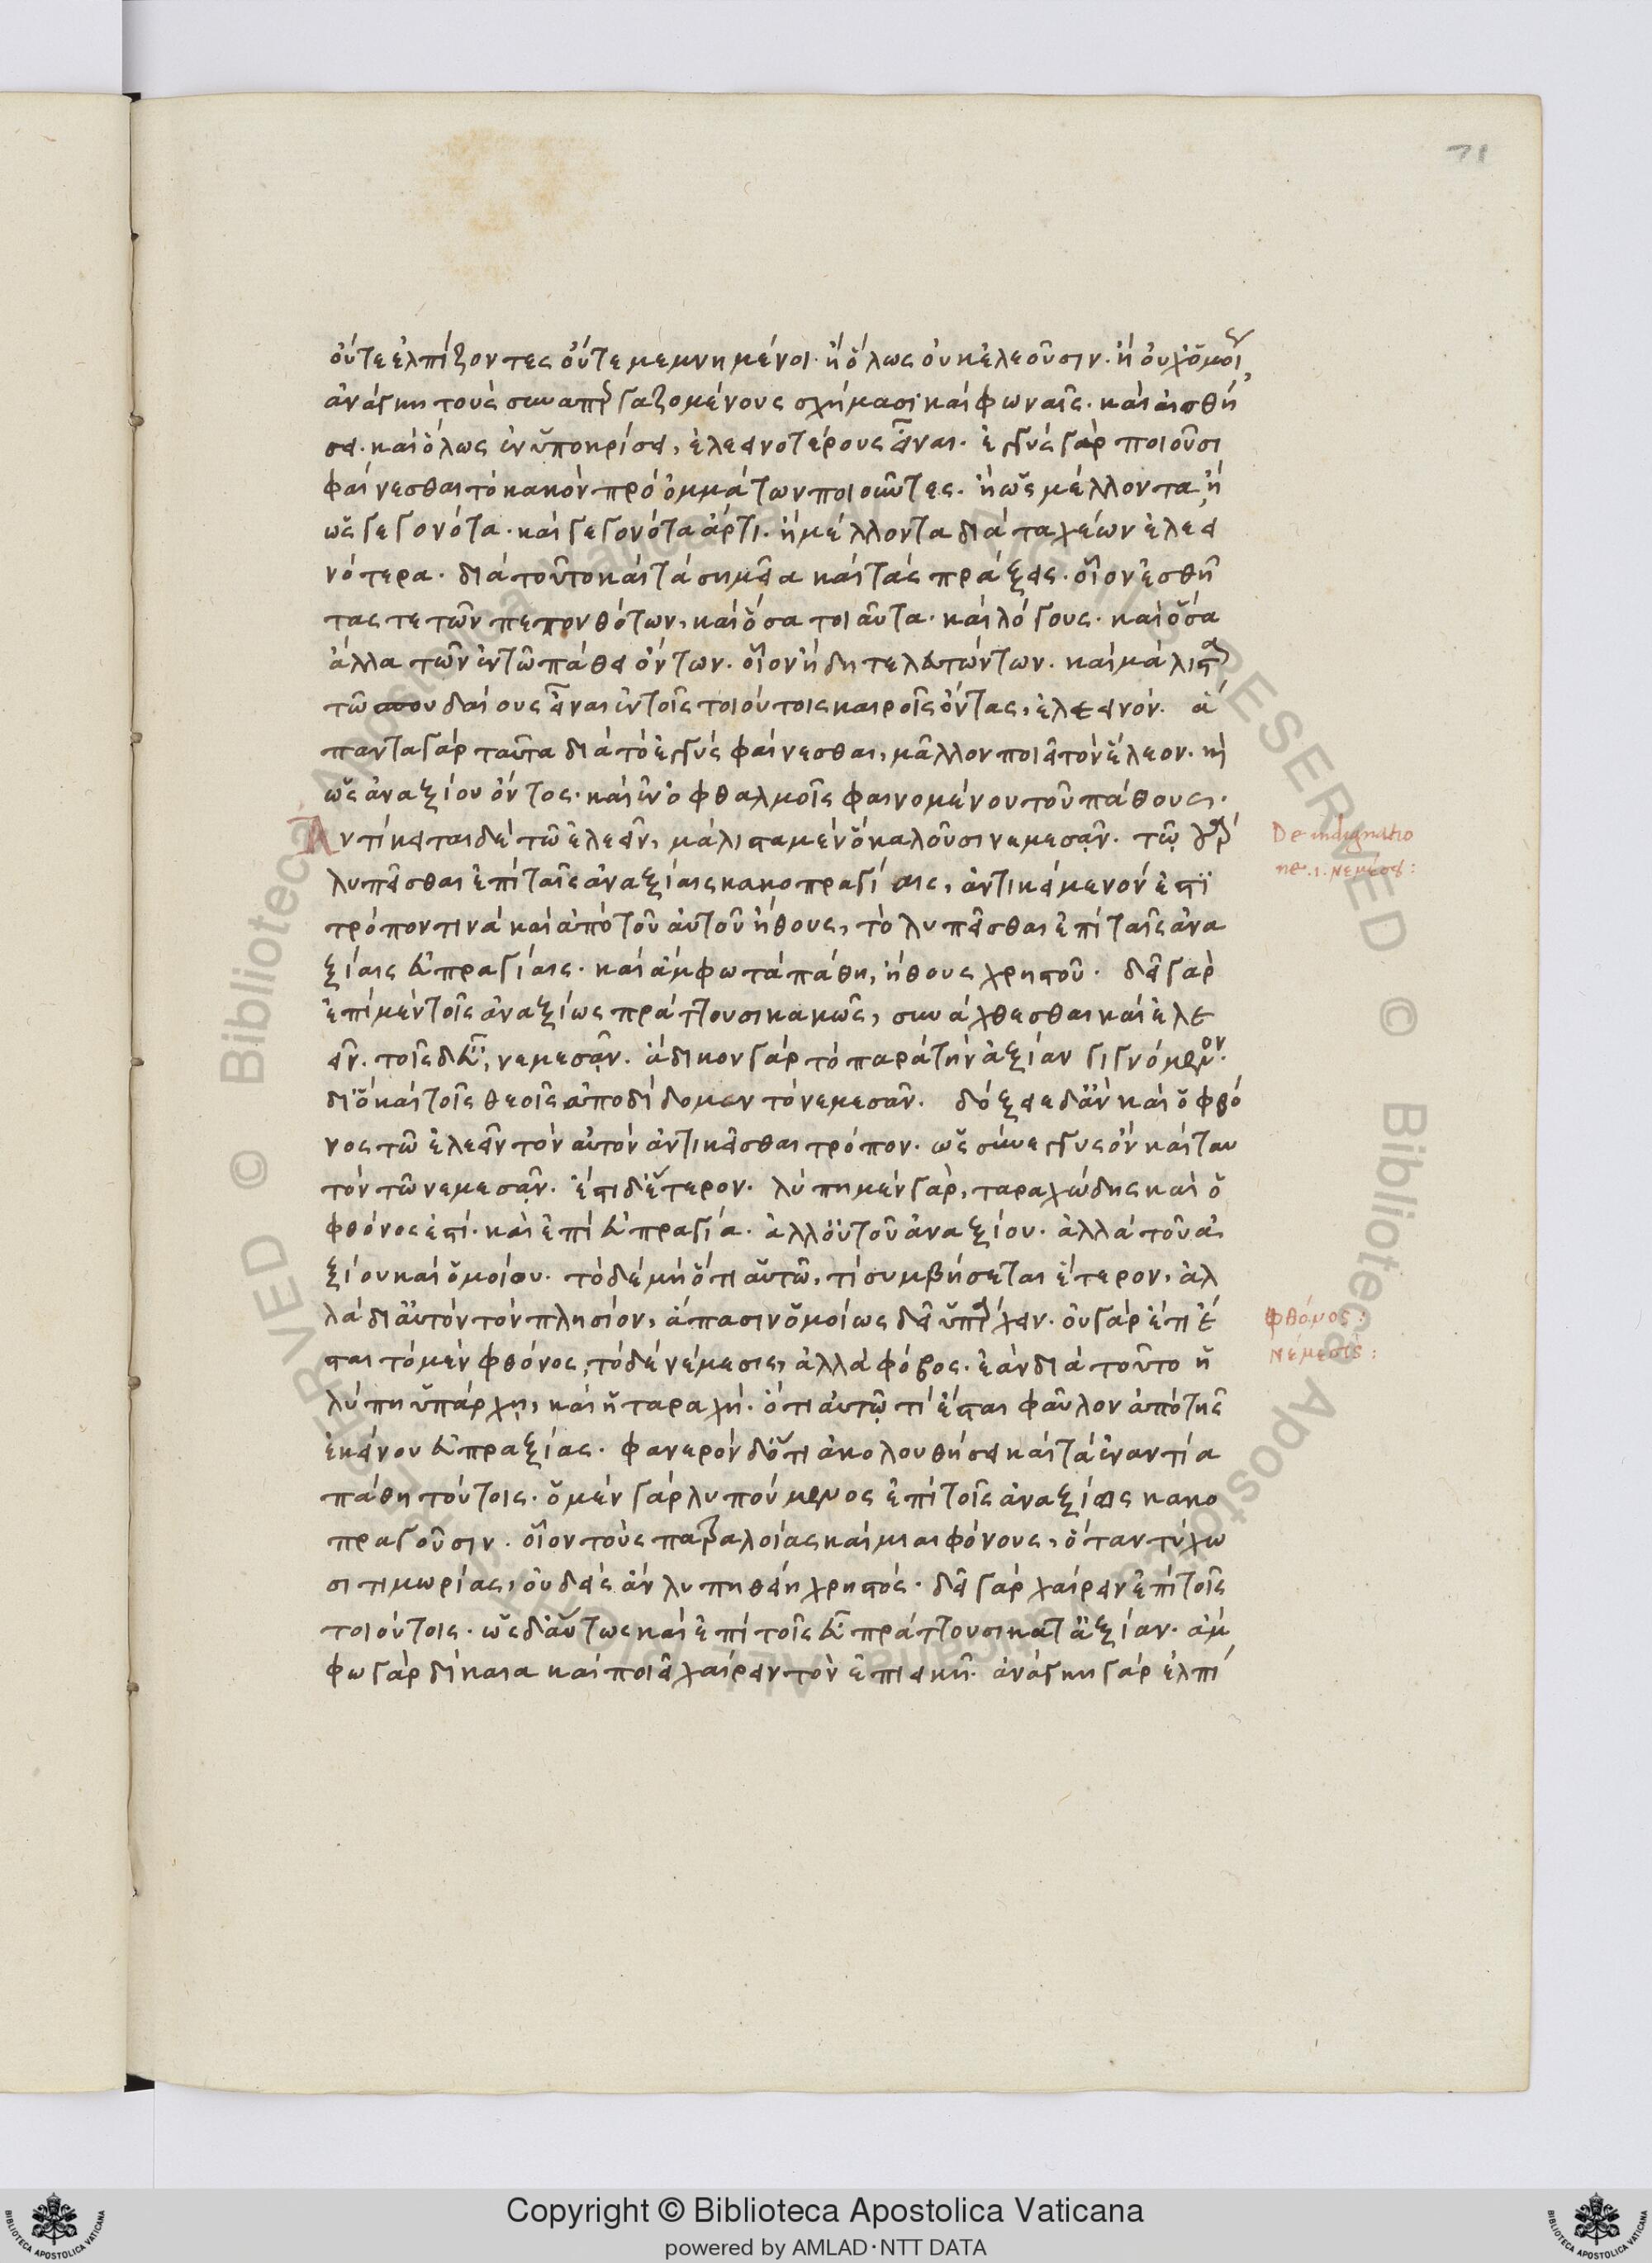 71
οὔτε ἐλπίζοντες οὔτε μεμνημένοι· ἢ ὅλως οὐκ ἐλεοῦσιν· ἢ οὐχ ὁμοί,
ἀνάγκη τοὺς συναπεργαζομένους σχήμασι καὶ φωναῖς· καὶ αἰσθή
σει· καὶ ὅλως ἐν ὑποκρίσει, ἐλεεινοτέρους εἶναι· ἐγγὺς γὰρ ποιοῦσι
φαίνεσθαι τὸ κακὸν πρὸ ὀμμάτων ποιοῦντες· ἢ ὡς μέλλοντα ἢ
ὡς γεγονότα· καὶ γεγονότα ἄρτι· ἢ μέλλοντα διὰ ταχέων ἐλεει
νότερα· διὰ τοῦτο καὶ τὰ σημεῖα καὶ τὰς πράξεις· οἷον ἐσθῆ
τας τε τῶν πεπονθότων, καὶ ὅσα τοιαῦτα· καὶ λόγους· καὶ ὅσα
ἄλλα τῶν ἐν τῶ πάθει ὄντων· οἷον ἤδη τελευτώντων· καὶ μάλιστα
τῶ σπουδαίους εἶναι ἐν τοῖς τοιούτοις καιροῖς ὄντας, ἐλεεινόν· ἅ
παντα γὰρ ταῦτα διὰ τὸ ἐγγὺς φαίνεσθαι, μᾶλλον ποιεῖ τὸν ἔλεον· καὶ
ὡς ἀναξίου ὄντος· καὶ ἐν ὀφθαλμοῖς φαινομένου τοῦ πάθους·
Ἀντίκειται δὲ τῶ ἐλεεῖν, μάλιστα μὲν ὃ καλοῦσι νεμεσᾷν· τῷ γὰρ
De indignatio
ne .1. νεμέσει:
λυπεῖσθαι ἐπὶ ταῖς ἀναξίαις κακοπραγίαις, ἀντικείμενόν ἐστι
τρόπον τινὰ καὶ ἀπὸ τοῦ αὐτοῦ ἤθους, τὸ λυπεῖσθαι ἐπὶ ταῖς ἀνα
ξίαις εὐπραγίαις· καὶ ἄμφω τὰ πάθη, ἤθους χρηστοῦ· δεῖ γὰρ
ἐπὶ μὲν τοῖς ἀναξίως πράττουσι κακῶς, συνάχθεσθαι καὶ ἐλε
εῖν· τοῖς δ εὖ, νεμεσᾷν· ἄδικον γὰρ τὸ παρὰ τὴν ἀξίαν γιγνόμενον·
διὸ καὶ τοῖς θεοῖς ἀποδίδομεν τὸ νεμεσᾶν· δόξειε δ ἂν καὶ ὁ φθό
νος τῶ ἐλεεῖν τὸν αὐτὸν ἀντικεῖσθαι τρόπον· ὡς σύνεγγυς ὂν καὶ ταυ
τὸν τῶ νεμεσᾷν· ἔστι δ ἕτερον· λύπη μὲν γὰρ, ταραχώδης καὶ ὁ
φθόνος ἐστί· καὶ ἐπὶ εὐπραγία· ἀλλ οὐ τοῦ ἀναξίου· ἀλλὰ τοῦ ἀ
ξίου καὶ ὁμοίου· τὸ δὲ μὴ ὅτι αὑτῶ, τὶ συμβήσεται ἕτερον, ἀλ
λὰ δι αὐτὸν τὸν πλησίον, ἅπασιν ὁμοίως δεῖ ὑπάρχειν· οὐ γὰρ ἔτι ἔ
φθόνος:
σται τὸ μὲν φθόνος, τὸ δὲ νέμεσις, ἀλλὰ φόβος· ἐὰν διὰ τοῦτο ἡ
Νέμεσις:
λύπη ὑπάρχῃ, καὶ ἡ ταραχή· ὅτι αὐτῷ τὶ ἔσται φαῦλον ἀπὸ τῆς
ἐκείνου εὐπραξίας· φανερὸν δ ὅτι ἀκολουθήσει καὶ τὰ ἐναντία
πάθη τούτοις· ὁ μὲν γὰρ λυπούμενος ἐπὶ τοῖς ἀναξίως κακο
πραγοῦσιν· οἷον τοὺς πατραλοίας καὶ μιαιφόνους, ὅταν τύχω
σι τιμωρίας, οὐδεὶς ἂν λυπηθείη χρηστός· δεῖ γὰρ χαίρειν ἐπὶ τοῖς
τοιούτοις· ὡς δ αὕτως καὶ ἐπὶ τοῖς εὖ πράττουσι κατ ἀξίαν· ἄμ
φω γὰρ δίκαια καὶ ποιεῖ χαίρειν τὸν ἐπιεικῆ· ἀνάγκη γὰρ ἐλπί
Copyright © Biblioteca Apostolica Vaticana
powered by AMLAD·NTT DATA